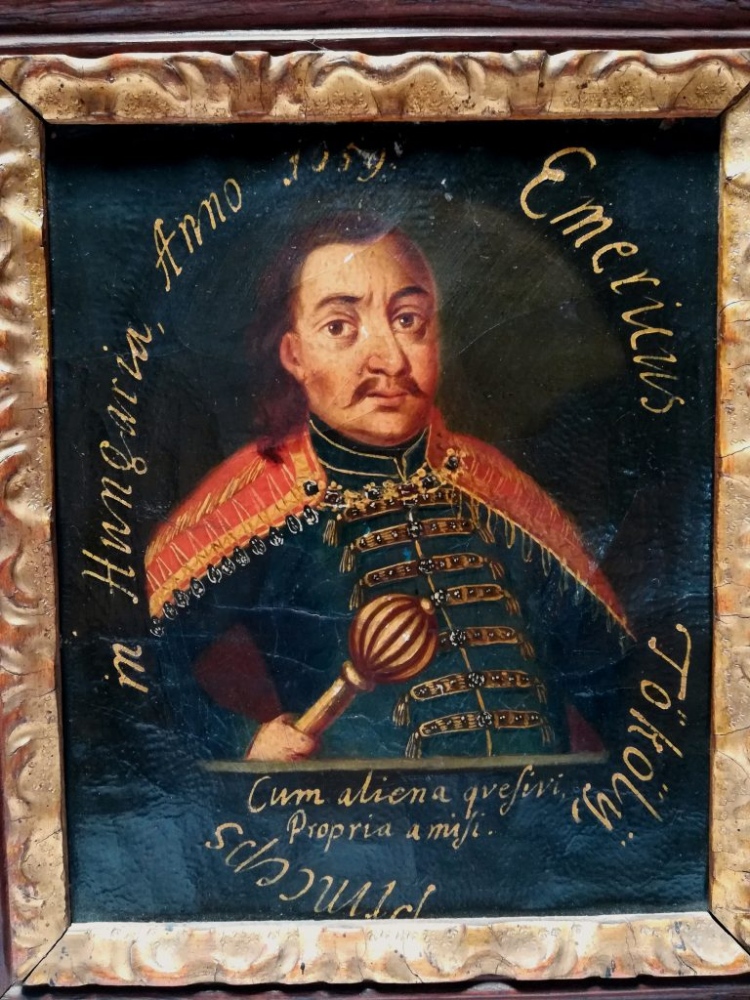 Emericus Tököly Princeps in Hungaria, Anno 1659.
Cum aliena qvesivi,
Propria amisi.